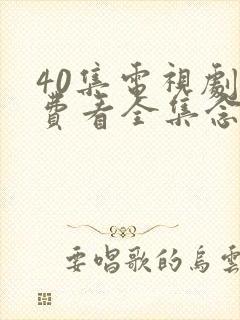 40集電視劇
費看全集念
要唱歌的烏雲